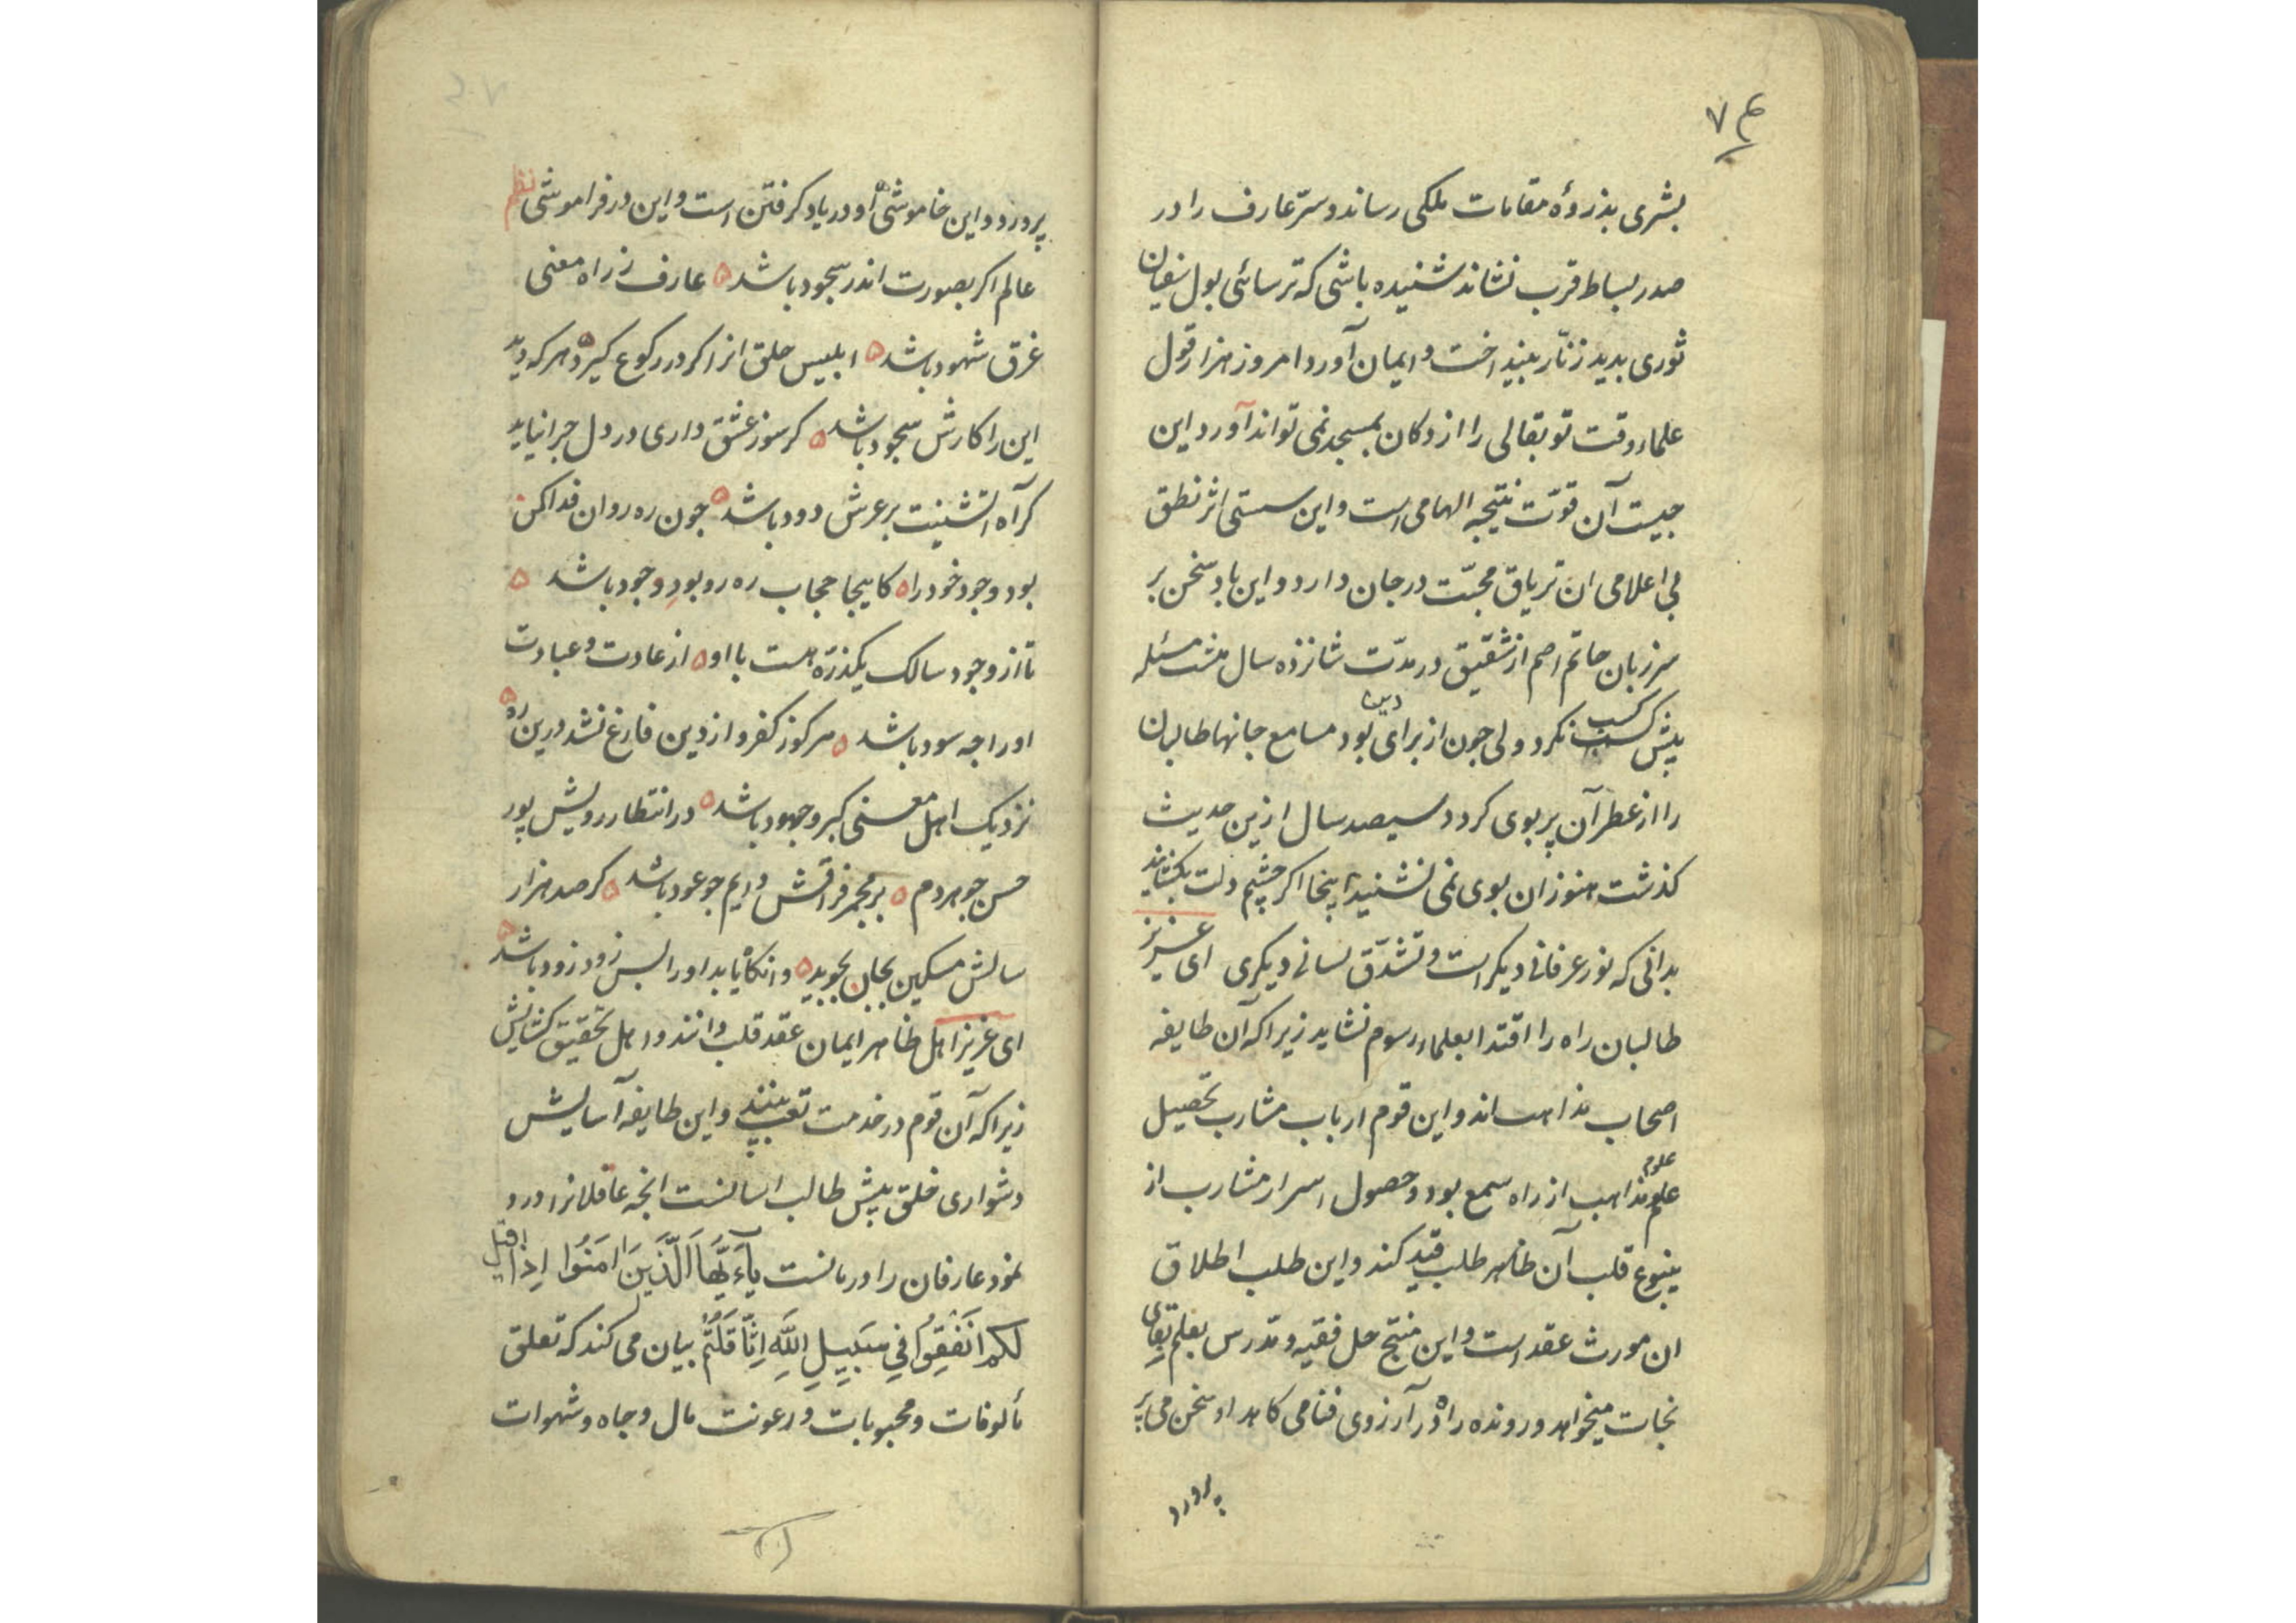 بشری بذروهٔ مقامات ملکی رساند و سرّ عارف را در
صدر بساط قرب نشاند شنیده باشی که ترسائی بول سفیان
ثوری بدید زنّار بینداخت و ایمان آورد امروز هزار قول
علماء وقت تو بقالی را از دکان بمسجد نمی تواند آورد این
جیست آن قوّت نتیجه الهامی است و این سستی اثر نطق
بی اعلامی ان تریاق محبّت در جان دارد و این باد سخن بر
سر زبان حاتم اصم از شقیق در مدّت شانزده سال هشت مسئله
بیش کسب نکرد ولی جون از برای دین بود مسامع جانها طالبان
را از عطر آن پر بوی کردد سیصد سال ازین حدیث
کذشت هنوز ان بوی نمی نشنید اینجا اکر چشم دلت بکشاید
بدانی که نور عرفانی دیکر است و تشدّق لسانی دیکری ای عزیز
طالبان راه را اقتدا بعلماء رسوم نشاید زیرا که آن طایفه
اصحاب مذاهب اند و این قوم ارباب مشارب تحصیل
علوم
علم مذاهب از راه سمع بود و حصول اسرار مشارب از
ینبوع قلب آن ظاهر طلب قید کند و این طلب اطلاق
ان مورث عقد است و این منتج حل فقیه و مدرس بعلم بقای
نجات میخواهد و رونده راه در آرزوی فنا می کاهد او سخن می پر
پرورد
پرورد و این خاموشی او در یاد کرفتن است و این در فراموشی نظم
عالم اکر بصورت اندر سجود باشد ه عارف ز راه معنی
غرق شهود باشد ه ابلیس حلق انرا کر در رکوع کیرد ه هر که دید
این را کارش سجود باشد ه کر سوز عشق داری در دل جرا نیاید
کر آه آتشینت بر عرش دود باشد ه جون ره روان فدا کن
بود وجود خود را ه کاینجا حجاب ره رو بودِ وجود باشد ه
تا از وجود سالک یکذرّه هست با او ه از عادت و عبادت
او را جه سود باشد ه هر کو ز کفر و از دین فارغ نشد درین ره ه
نزدیک اهل معنی کبر و جهود باشد ه در انتظار رویش پور
حسن جو هر دم ه بر مجمر فراقش دایم جو عود باشد ه کر صد هزار
سالش مسکین بجان بجوید ه وانکاه یابد او را بس زود زود باشد ه
ای عزیز اهل ظاهر ایمان عقد قلب دانند و اهل تحقیق کشایش
زیرا که آن قوم در خدمت تعب بینند و این طایفه آسایش
دشواری خلق پیش طالب اسانست انجه عاقلانرا درد
نمود عارفان را درمانست یَآءَیُّهَا الَّذینَ اٰمَنُوا اِذَا قیل
لکم انَفَقِوُا فِی سَبیلِ اللّهَ اِثّاقَلْتُمْ بیان می کند که تعلق
مألوفات و محبوبات و رعونت مال و جاه و شهوات